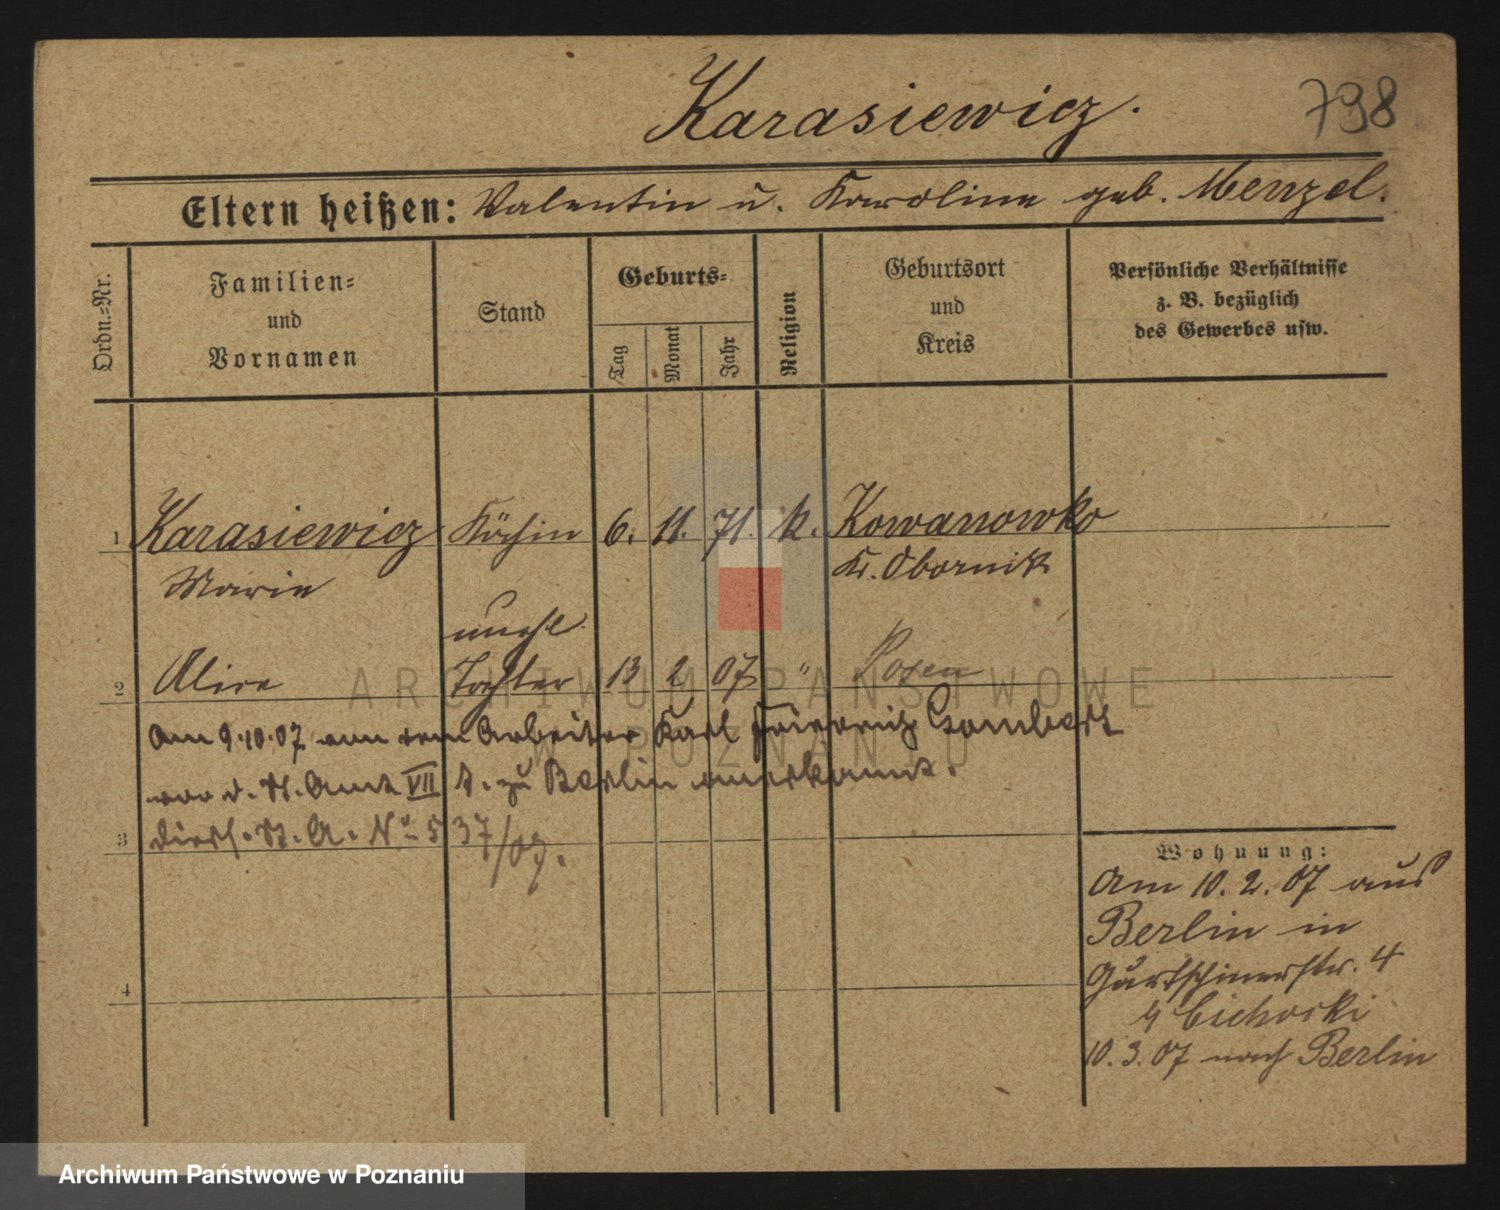 Karasiewicz.
798
Eltern heißen: Valentin u. Karoline geb. Menzel.
Ordn.=Nr.
Familien=
und
Vornamen
Stand
Geburts=
Tag
Monat
Jahr
Religion
Geburtsort
und
Kreis
Persönliche Verhältnisse
z. B. bezüglich
des Gewerbes usw.
1 Karasiewicz Köchin 6. 11. 71. k. Kowanowko
Marie Kr. Obornik
unehl.
2 Alice Tochter 13 2 07 " Posen
Am 9.10.07 von dem Arbeiter Karl Friedrich Gombert
vor d. St. Amt VII b. zu Berlin anerkannt.
3 diess. St. A. No 537/07.
4
Wohnung:
Am 10. 2. 07 aus
Berlin in
Gurtschinerstr. 4
b/ Cichocki
10. 3. 07 nach Berlin
ARCHIWUM PAŃSTWOWE
W POZNANIU
Archiwum Państwowe w Poznaniu